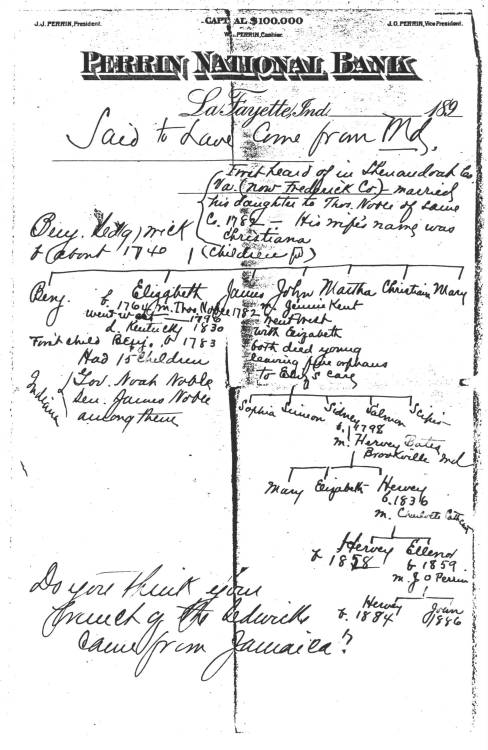 J.J. PERRIN, President.
CAPITAL $100.000
J.O. PERRIN, Vice President.
W. PERRIN, Cashier.
PERRIN NATIONAL BANK
LaFayette, Ind. 189
Said to have come from Md.
First heard of in Shenandoah Co.
Va. (now Frederick Co) - married
his daughter to Thos. Noble of same
C. 1782 - His wife's name was
Christiana
Benj. Sedgwick
b about 1740
(Children
Benj. Elizabeth James John Martha Christian Mary
b. 1764 m. Thos Noble 1782
went west 1796
d. Kentucky 1830
First child Benj. b 1783
Had 15 children
Indiana
Gov. Noah Noble
Sen. James Noble
among them
m. Jennie Kent
went West
with Elizabeth
both died young
leaving five orphans
to Benj's care
Sophia Simson Sidney Salmon Scipio
b. 1798
m. Hervey Bates
Brookville Ind
Mary Elizabeth Hervey
b. 1836
m. Charlotte Cathcart
Hervey Ellenor
b 1858 b 1859
m. J O Perrin
Hervey Joan
b. 1884 1886
Do you think your
branch of the Sedwicks
came from Jamaica?